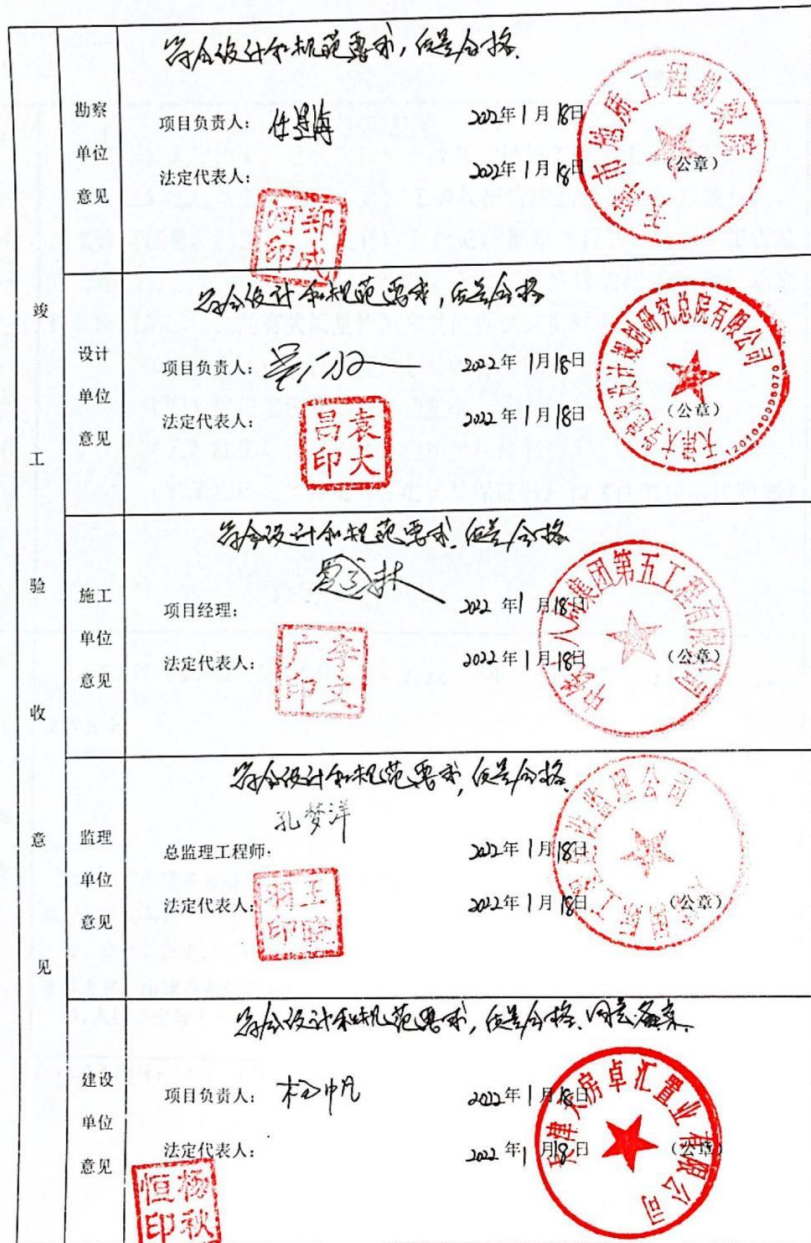 竣工验收意见
勘察单位意见
符合设计和规范要求，质量合格.
项目负责人：
2022年1月18日
法定代表人：
2022年1月18日
（公章）
天津市地质工程勘察院
郑成印
设计单位意见
符合设计和规范要求，质量合格
项目负责人：
2022年1月18日
法定代表人：
2022年1月18日
（公章）
袁大昌印
天津大学建筑设计规划研究总院有限公司
施工单位意见
符合设计和规范要求，质量合格
项目经理：
2022年1月18日
法定代表人：
2022年1月18日
（公章）
集团第五工程有限公司
监理单位意见
符合设计和规范要求，质量合格
总监理工程师：
孔梦洋
2022年1月18日
法定代表人：
2022年1月18日
（公章）
国际工程建设监理公司
建设单位意见
符合设计和规范要求，质量合格.同意备案.
项目负责人：
2022年1月18日
法定代表人：
2022年1月18日
（公章）
杨秋恒印
天津天房卓汇置业有限公司